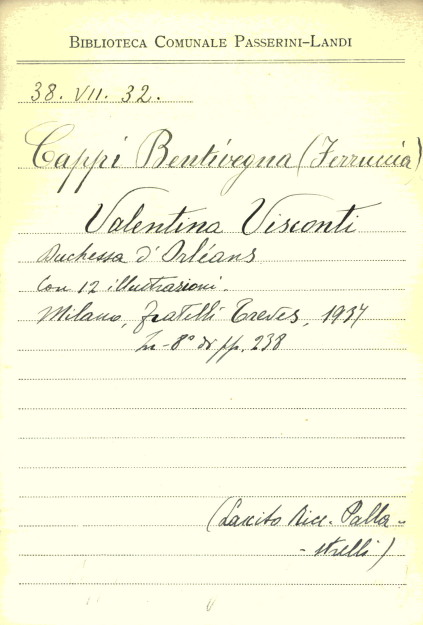 BIBLIOTECA COMUNALE PASSERINI-LANDI
38. VII. 32.
Cappi Bentivegna (Ferruccia)
Valentina Visconti
Duchessa d'Orléans
Con 12 illustrazioni.
Milano, Fratelli Treves, 1937
In-8° di pp. 238
(Lascito Nice. Palla-
-strelli)